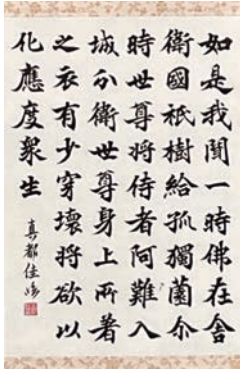 如是我聞一時佛在舍
衛國祇樹給孤獨薗尒
時世尊將侍者阿難入
城分衛世尊身上所著
之衣有少穿壞將欲以
化應度衆生
真都佳